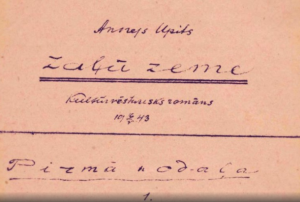 Andrejs Upīts
Zaļā zeme
Kultūrvēsturisks romāns
Pirmā nodaļa
1.